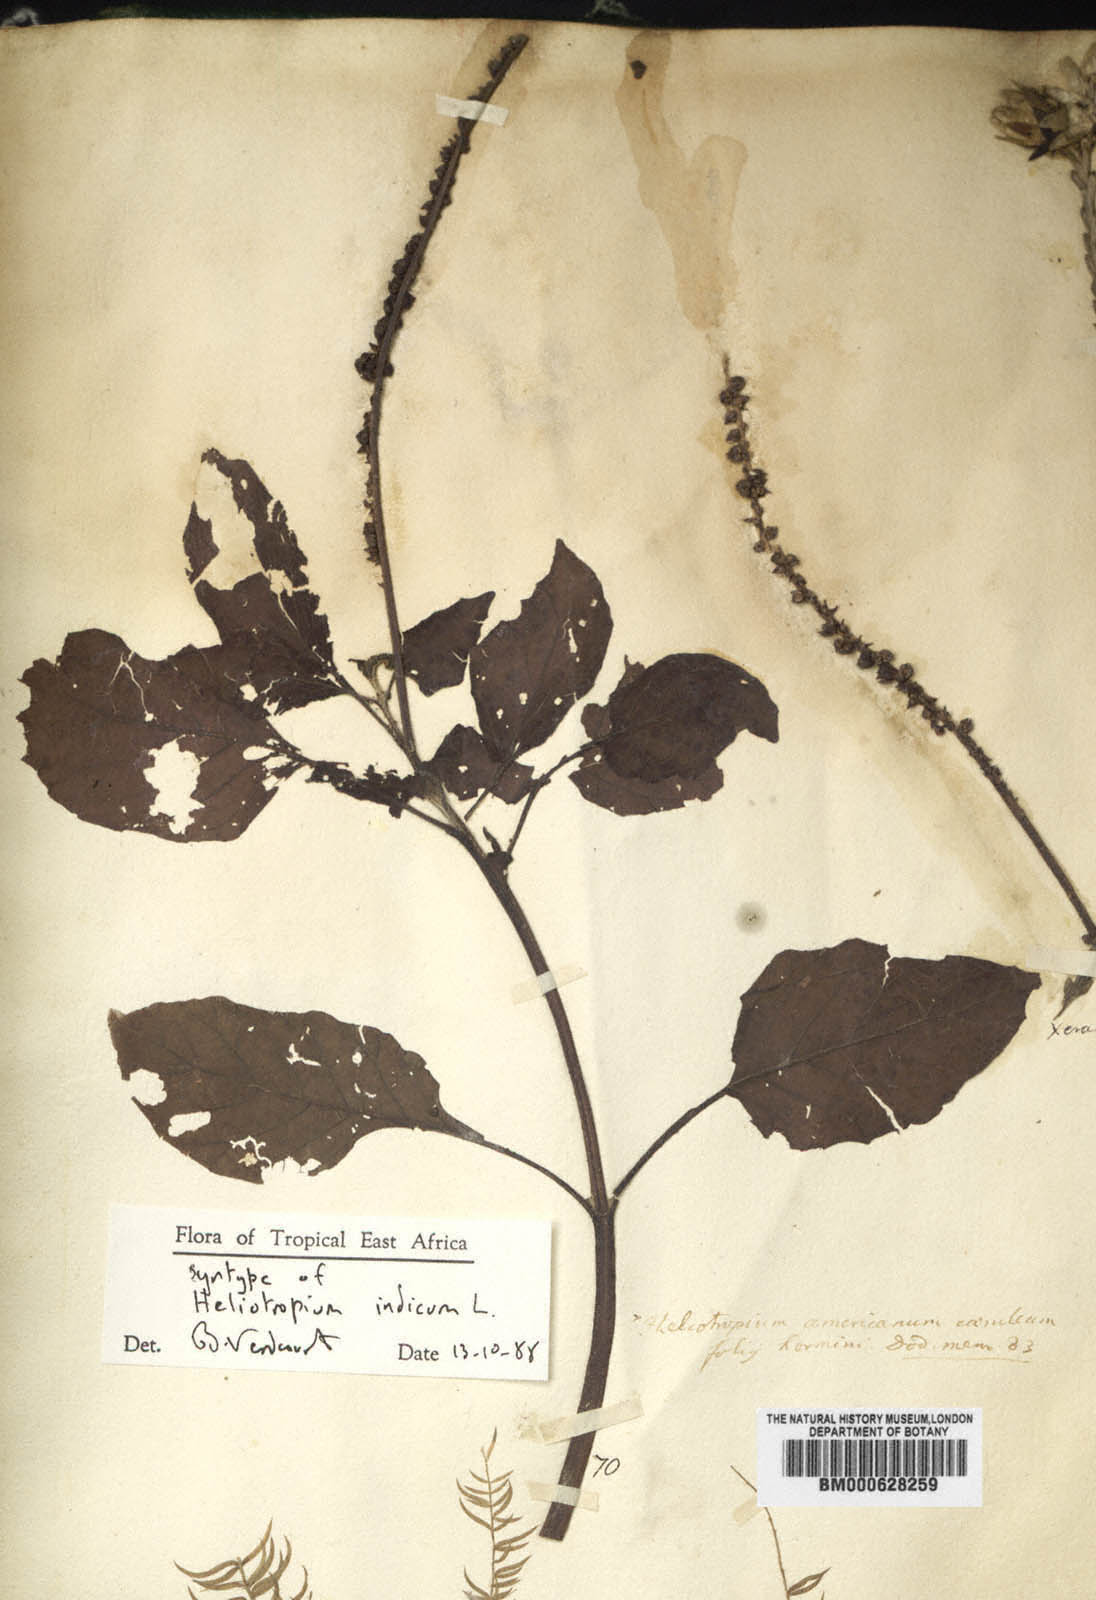 Xera
Flora of Tropical East Africa
Syntype of
Heliotropium indicum L.
Det. B. Verdcourt Date 13-10-88
Heliotropium americanum cæruleum
folij hormini. Dod. mem. 83
THE NATURAL HISTORY MUSEUM, LONDON
DEPARTMENT OF BOTANY
BM000628259
70